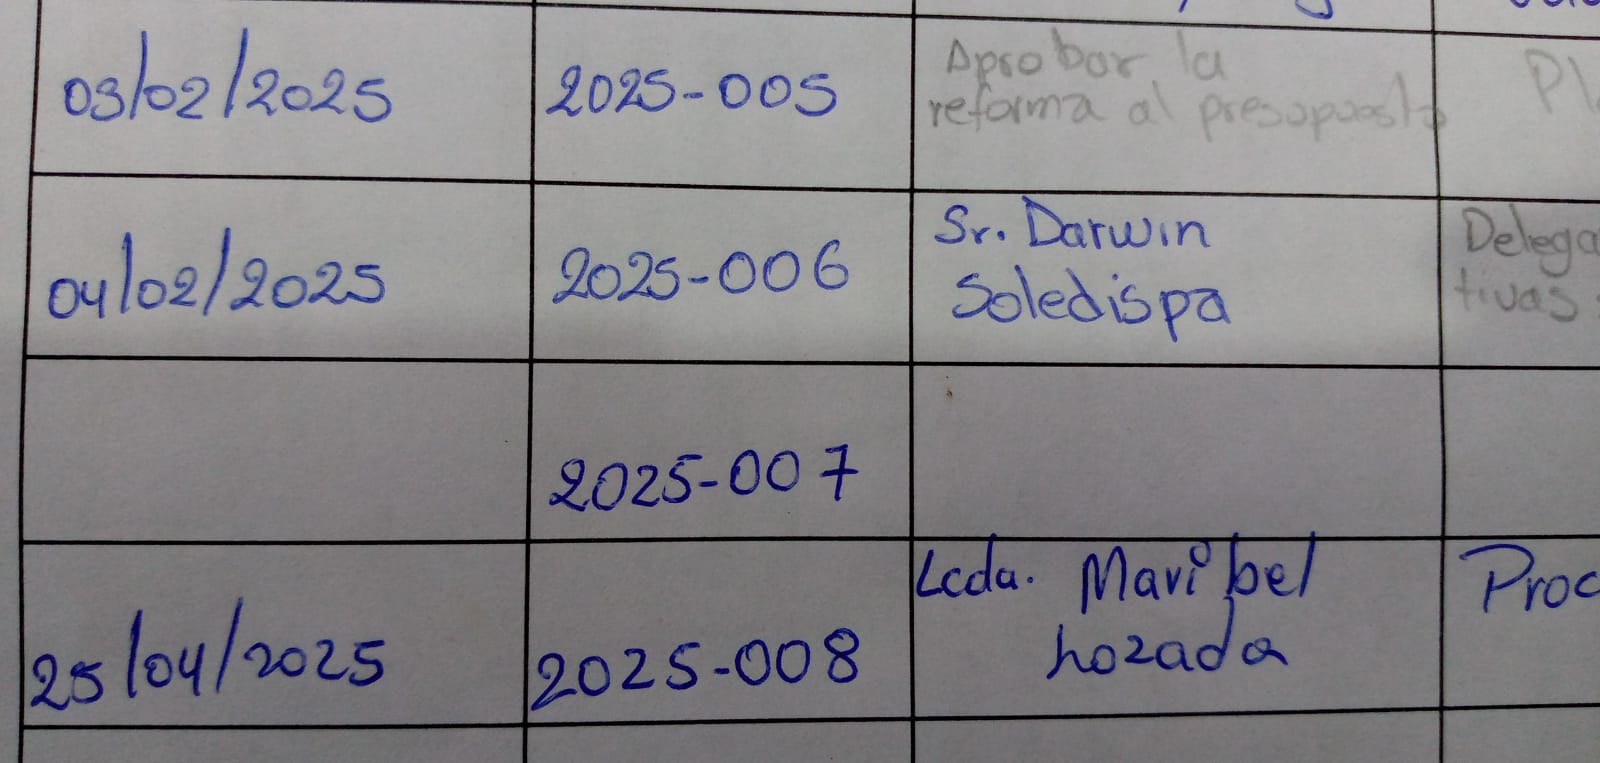 03/02/2025 2025-005 Aprobar la
reforma al presupuesto
04/02/2025 2025-006 Sr. Darwin Delega
Soledispa tivas
2025-007
25/04/2025 2025-008 Lcda. Maribel Proc
Lozada